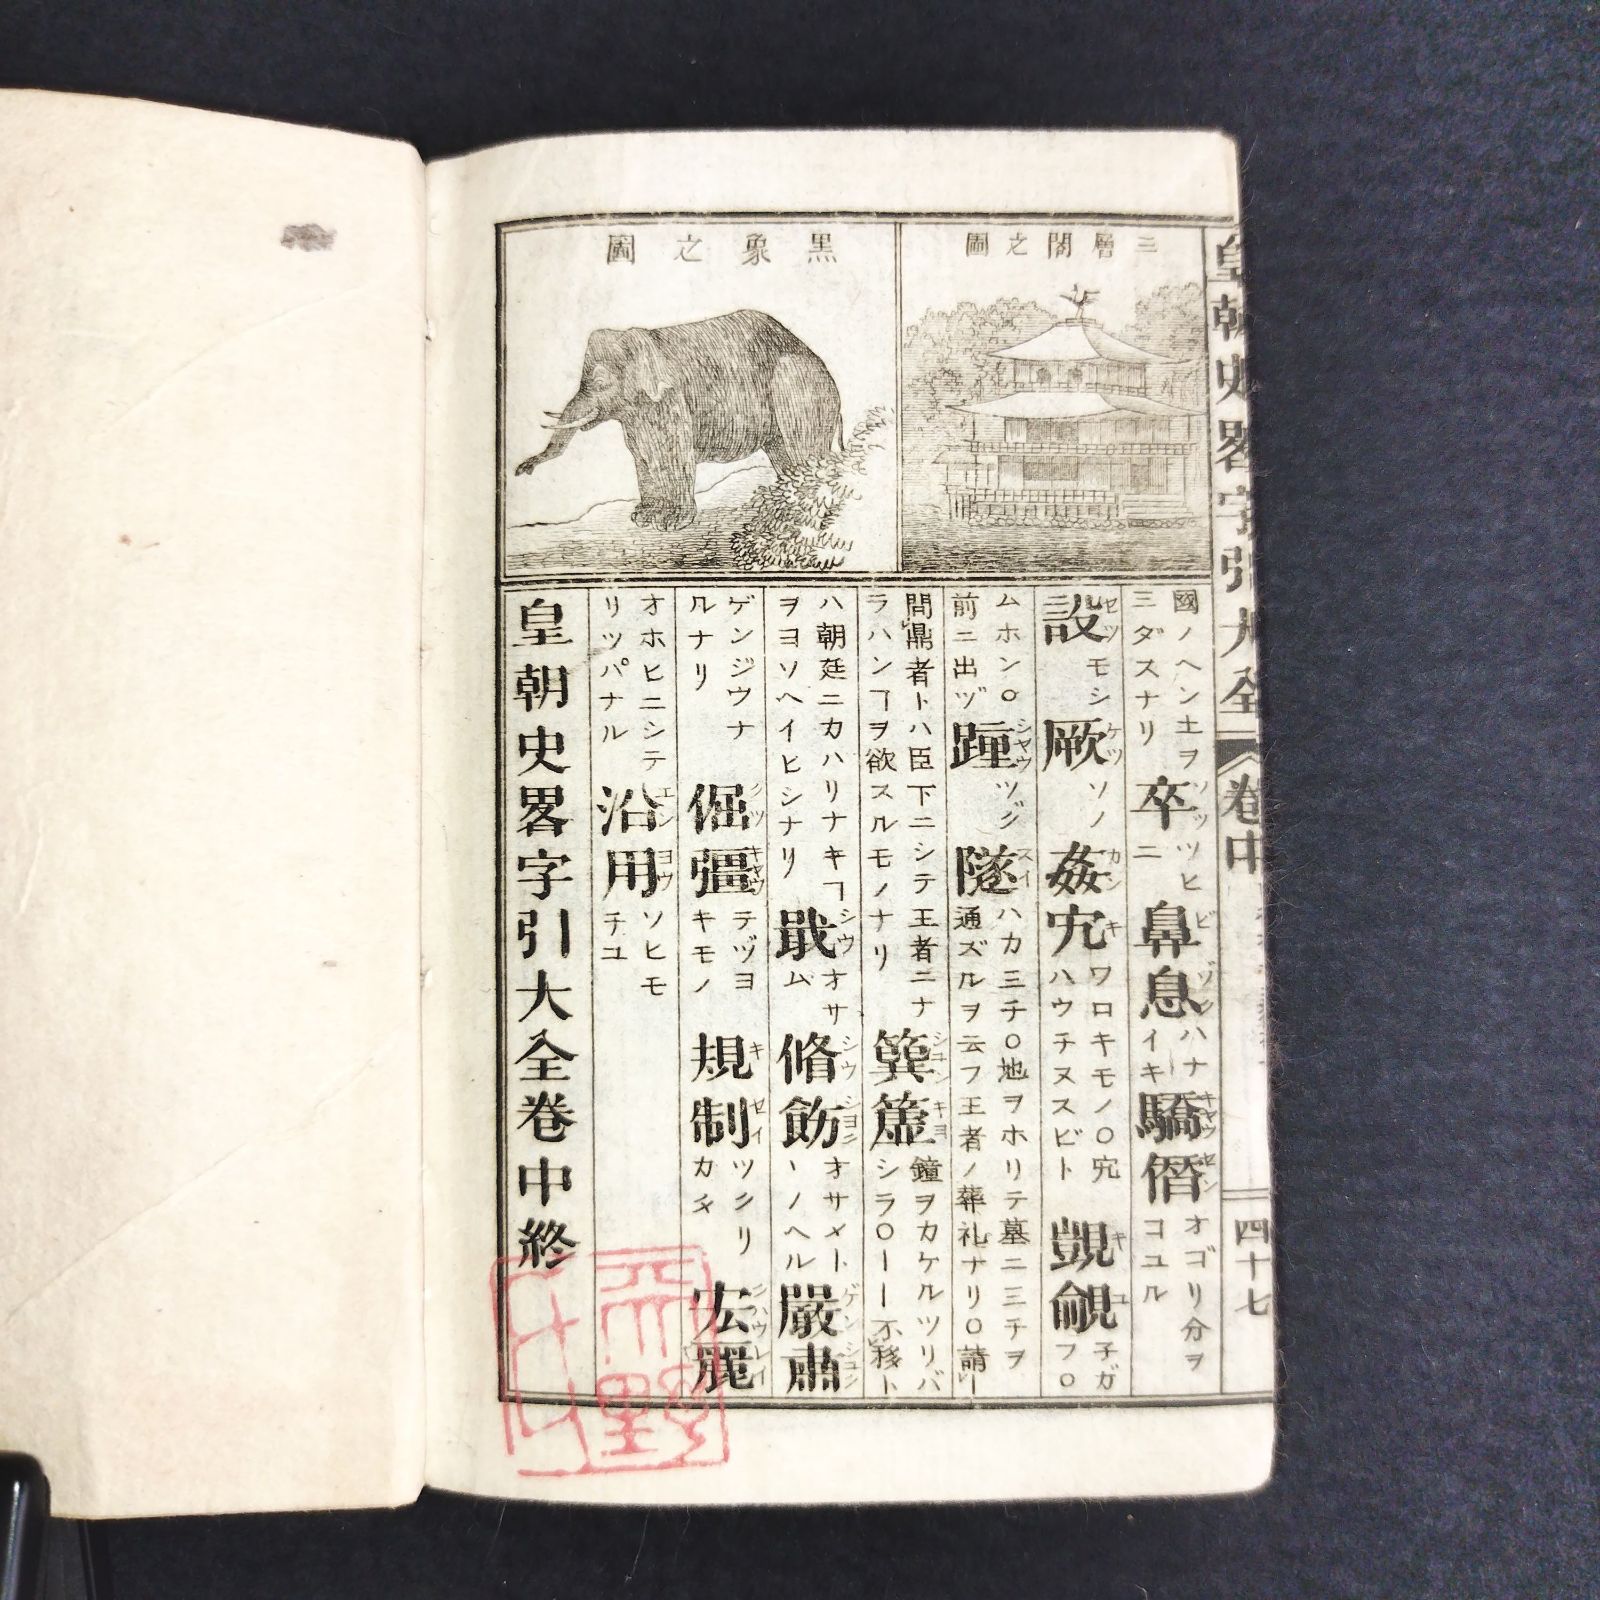 三層閣之圖
黒象之圖
皇朝史畧字引大全
巻中
四十七
國ノヘン土ヲ
ミダスナリ
卒ソツツヒニ
鼻息ビソクハナイキ
驕僭キヤウセンオゴリ分ヲコユル
設セツモシ
厥ケツソノ
姦宄カンキワロキモノ○宄ハウチヌスビト
覬覦キユ子ガフ○
ムホン○
前ニ出ヅ
踵シヤウツグ
隧スイハカミチ○地ヲホリテ墓ニミチヲ通ズルヲ云フ王者ノ葬礼ナリ○請ー
問鼎者トハ臣下ニシテ王者ニナ
ラハンヿヲ欲スルモノナリ
簨簴シユンキヨ鐘ヲカケルツリバシラ○ーー不移ト
ハ朝廷ニカハリナキヿ
ヲヨソヘイヒシナリ
戢シウオサム
脩飭シウシヨクオサメトヽノヘル
嚴肅ゲンシユク
ゲンジウナ
ルナリ
倔彊クツキヤウテヅヨキモノ
規制キセイツクリカタ
宏麗クハウレイ
オホヒニシテ
リツパナル
沿用エンヨウソヒモチユ
皇朝史畧字引大全巻中終